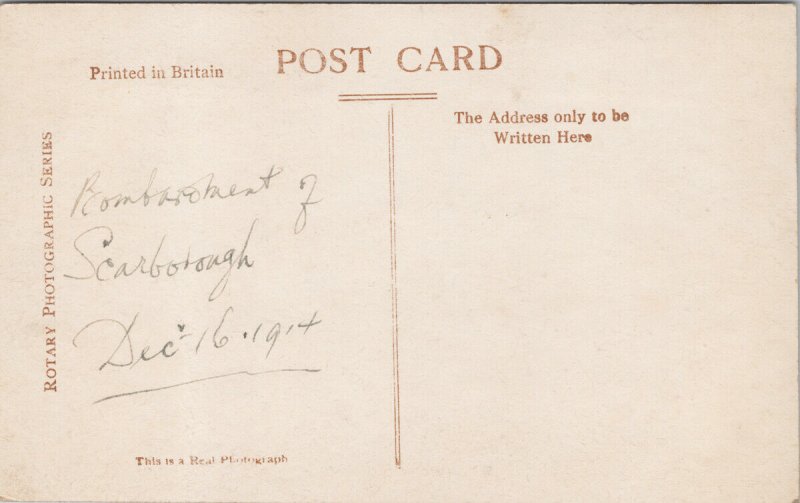 POST CARD
Printed in Britain
The Address only to be
Written Here
ROTARY PHOTOGRAPHIC SERIES
Bombardment of
Scarborough
Dec 16 · 1914
This is a Real Photograph